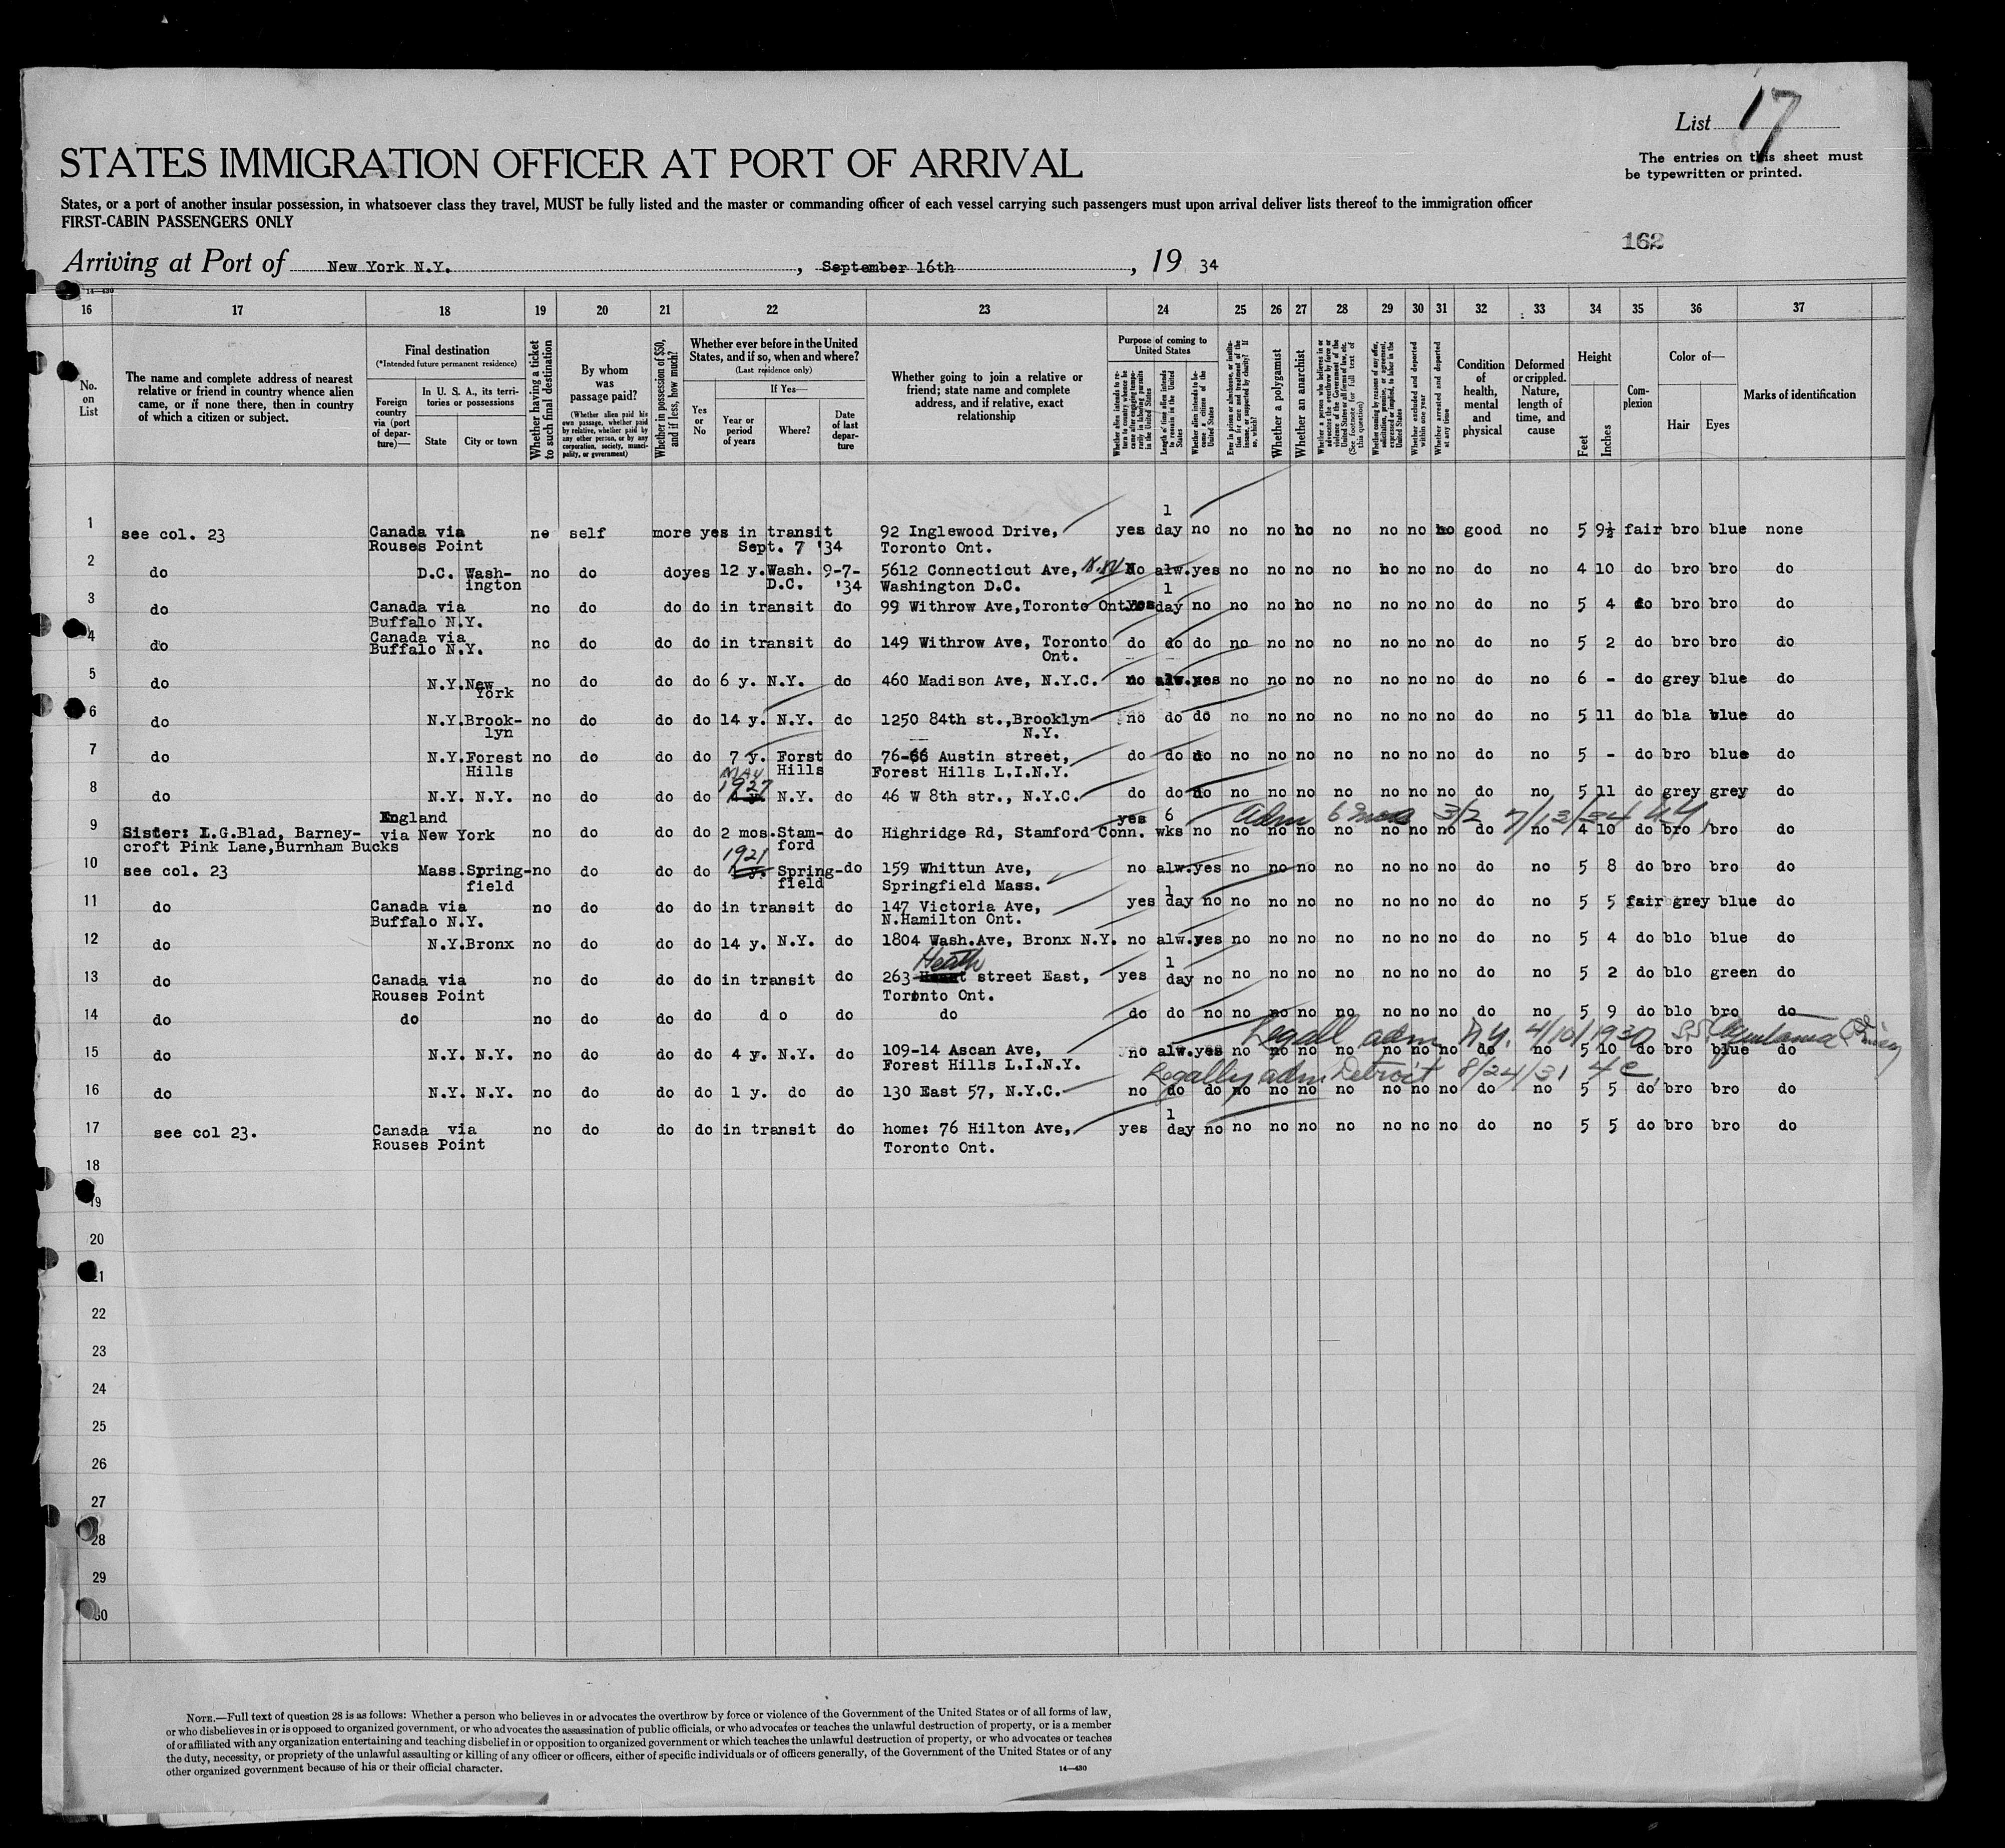 List 17
STATES IMMIGRATION OFFICER AT PORT OF ARRIVAL
The entries on this sheet must
be typewritten or printed.
States, or a port of another insular possession, in whatsoever class they travel, MUST be fully listed and the master or commanding officer of each vessel carrying such passengers must upon arrival deliver lists thereof to the immigration officer
FIRST-CABIN PASSENGERS ONLY
162
Arriving at Port of New York N.Y., September 16th, 19 34
14—430
16 17 18 19 20 21 22 23 24 25 26 27 28 29 30 31 32 33 34 35 36 37
No. on List
The name and complete address of nearest relative or friend in country whence alien came, or if none there, then in country of which a citizen or subject.
Final destination
(*Intended future permanent residence)
Foreign country via (port of departure)—
In U. S. A., its territories or possessions
State
City or town
Whether having a ticket to such final destination
By whom was passage paid?
(Whether alien paid his own passage, whether paid by relative, whether paid by any other person, or by any corporation, society, municipality, or government)
Whether in possession of $50, and if less, how much?
Whether ever before in the United States, and if so, when and where?
(Last residence only)
Yes or No
If Yes—
Year or period of years
Where?
Date of last departure
Whether going to join a relative or friend; state name and complete address, and if relative, exact relationship
Purpose of coming to United States
Whether alien intends to return to country whence he came after engaging temporarily in laboring pursuits in the United States
Length of time alien intends to remain in the United States
Whether alien intends to become a citizen of the United States
Ever in prison or almshouse, or institution for care and treatment of the insane, or supported by charity? If so, which?
Whether a polygamist
Whether an anarchist
Whether a person who believes in or advocates the overthrow by force or violence of the Government of the United States or all forms of law, etc. (See footnote for full text of this question)
Whether coming by reason of any offer, solicitation, promise, or agreement, expressed or implied, to labor in the United States
Whether excluded and deported within one year
Whether arrested and deported at any time
Condition of health, mental and physical
Deformed or crippled. Nature, length of time, and cause
Height
Feet
Inches
Complexion
Color of—
Hair
Eyes
Marks of identification
1 see col. 23 Canada via Rouses Point no self more yes in transit Sept. 7 '34 92 Inglewood Drive, Toronto Ont. yes 1 day no no no no no no no no good no 5 9½ fair bro blue none
2 do D.C. Washington no do do yes 12 y. Wash. D.C. 9-7-'34 5612 Connecticut Ave, Washington D.C. No alw. yes no no no no no no no do no 4 10 do bro bro do
3 do Canada via Buffalo N.Y. no do do do in transit do 99 Withrow Ave, Toronto Ont. yes 1 day no no no no no no no no do no 5 4 do bro bro do
4 do Canada via Buffalo N.Y. no do do do in transit do 149 Withrow Ave, Toronto Ont. do do do no no no no no no no do no 5 2 do bro bro do
5 do N.Y. New York no do do do 6 y. N.Y. do 460 Madison Ave, N.Y.C. no alw. yes no no no no no no no do no 6 - do grey blue do
6 do N.Y. Brooklyn no do do do 14 y. N.Y. do 1250 84th st., Brooklyn N.Y. no do do no no no no no no no do no 5 11 do bla blue do
7 do N.Y. Forest Hills no do do do 7 y. Forst Hills do 76-66 Austin street, Forest Hills L.I.N.Y. do do do no no no no no no no do no 5 - do bro blue do
8 do N.Y. N.Y. no do do do MAY 1927 N.Y. do 46 W 8th str., N.Y.C. do do do no no no no no no no do no 5 11 do grey grey do
Adm 6 mos 3/2 7/13/34
9 Sister: L.G.Blad, Barneycroft Pink Lane, Burnham Bucks England via New York no do do do 2 mos. Stamford do Highridge Rd, Stamford Conn. yes 6 wks no no no no no no no no do no 4 10 do bro bro do
10 see col. 23 Mass. Springfield no do do do 1921 Springfield do 159 Whittun Ave, Springfield Mass. no alw. yes no no no no no no no do no 5 8 do bro bro do
11 do Canada via Buffalo N.Y. no do do do in transit do 147 Victoria Ave, N.Hamilton Ont. yes 1 day no no no no no no no no do no 5 5 fair grey blue do
12 do N.Y. Bronx no do do do 14 y. N.Y. do 1804 Wash.Ave, Bronx N.Y. no alw. yes no no no no no no no do no 5 4 do blo blue do
13 do Canada via Rouses Point no do do do in transit do 263 Heath street East, Toronto Ont. yes 1 day no no no no no no no no do no 5 2 do blo green do
14 do do no do do do do do do do do no no no no no no no no do no 5 9 do blo bro do
Legall adm N.Y. 4/10/1930 S.S. Aquitania
15 do N.Y. N.Y. no do do do 4 y. N.Y. do 109-14 Ascan Ave, Forest Hills L.I.N.Y. no alw. yes no no no no no no no do no 5 10 do bro blue do
Legally adm Detroit 8/24/31 4e
16 do N.Y. N.Y. no do do do 1 y. do do 130 East 57, N.Y.C. no do do no no no no no no no do no 5 5 do bro bro do
17 see col 23. Canada via Rouses Point no do do do in transit do home: 76 Hilton Ave, Toronto Ont. yes 1 day no no no no no no no no do no 5 5 do bro bro do
18
19
20
21
22
23
24
25
26
27
28
29
30
NOTE.—Full text of question 28 is as follows: Whether a person who believes in or advocates the overthrow by force or violence of the Government of the United States or of all forms of law,
or who disbelieves in or is opposed to organized government, or who advocates the assassination of public officials, or who advocates or teaches the unlawful destruction of property, or is a member
of or affiliated with any organization entertaining and teaching disbelief in or opposition to organized government or which teaches the unlawful destruction of property, or who advocates or teaches
the duty, necessity, or propriety of the unlawful assaulting or killing of any officer or officers, either of specific individuals or of officers generally, of the Government of the United States or of any
other organized government because of his or their official character.
14—430